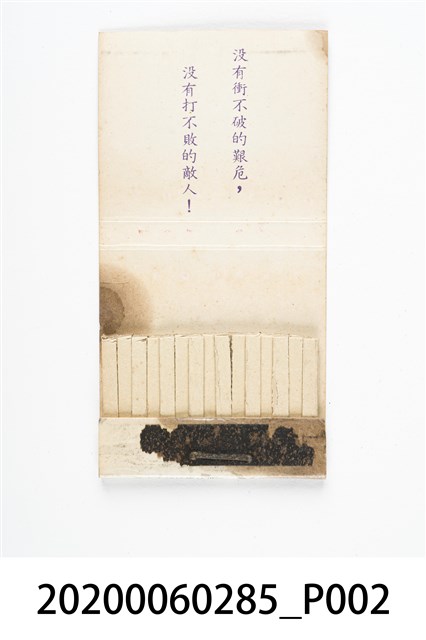 没有衝不破的艱危，
没有打不敗的敵人！
20200060285_P002